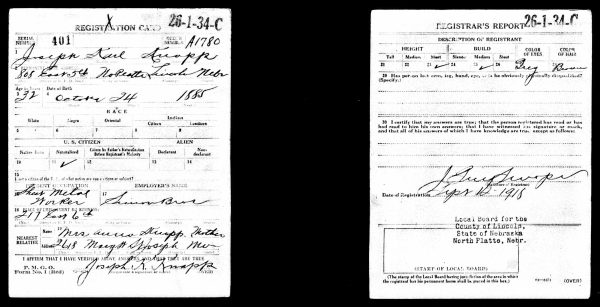 REGISTRATION CARD 26-1-34-C
SERIAL NUMBER 401 ORDER NUMBER A1780
Joseph Karl Knapp
808 East 5th No Platte Lincoln Nebr
Age in Years Date of Birth
32 October 24 1885
RACE
White Negro Oriental Indian
Citizen Noncitizen
5 6 7 8 9
U. S. CITIZEN ALIEN
Native Born Naturalized Citizen by Father's Naturalization Before Registrant's Majority Declarant Non-declarant
10 11 ✓ 12 13 14
15 If not a citizen of the U.S., of what nation are you a citizen or subject?
PRESENT OCCUPATION EMPLOYER'S NAME
16 Sheet Metal Worker 17 Simon Bros
18 PLACE OF EMPLOYMENT OR BUSINESS
217 East 6th
NEAREST RELATIVE
Name 19 Mrs. Knapp Mother
Address 20 St Joseph Mo
I AFFIRM THAT I HAVE VERIFIED ABOVE ANSWERS AND THAT THEY ARE TRUE
P. M. G. O.
Form No. 1 (Red) Joseph K. Knapp
REGISTRAR'S REPORT 26-1-34-C
DESCRIPTION OF REGISTRANT
HEIGHT BUILD COLOR OF EYES COLOR OF HAIR
Tall Medium Short Slender Medium Stout
21 22 23 24 25 26 27 Grey 28 Brown
29 Has person lost arm, leg, hand, eye, or is he obviously physically disqualified?
(Specify)
30 I certify that my answers are true; that the person registered has read or has
had read to him his own answers; that I have witnessed his signature or mark,
and that all of his answers of which I have knowledge are true, except as follows:
(Signature of Registrar)
Date of Registration Sept 12 1918
Local Board for the
County of Lincoln,
State of Nebraska
North Platte, Nebr.
(STAMP OF LOCAL BOARD)
(The stamp of the Local Board having jurisdiction of the area in which
the registrant has his permanent home shall be stamped in this box.)
(OVER)